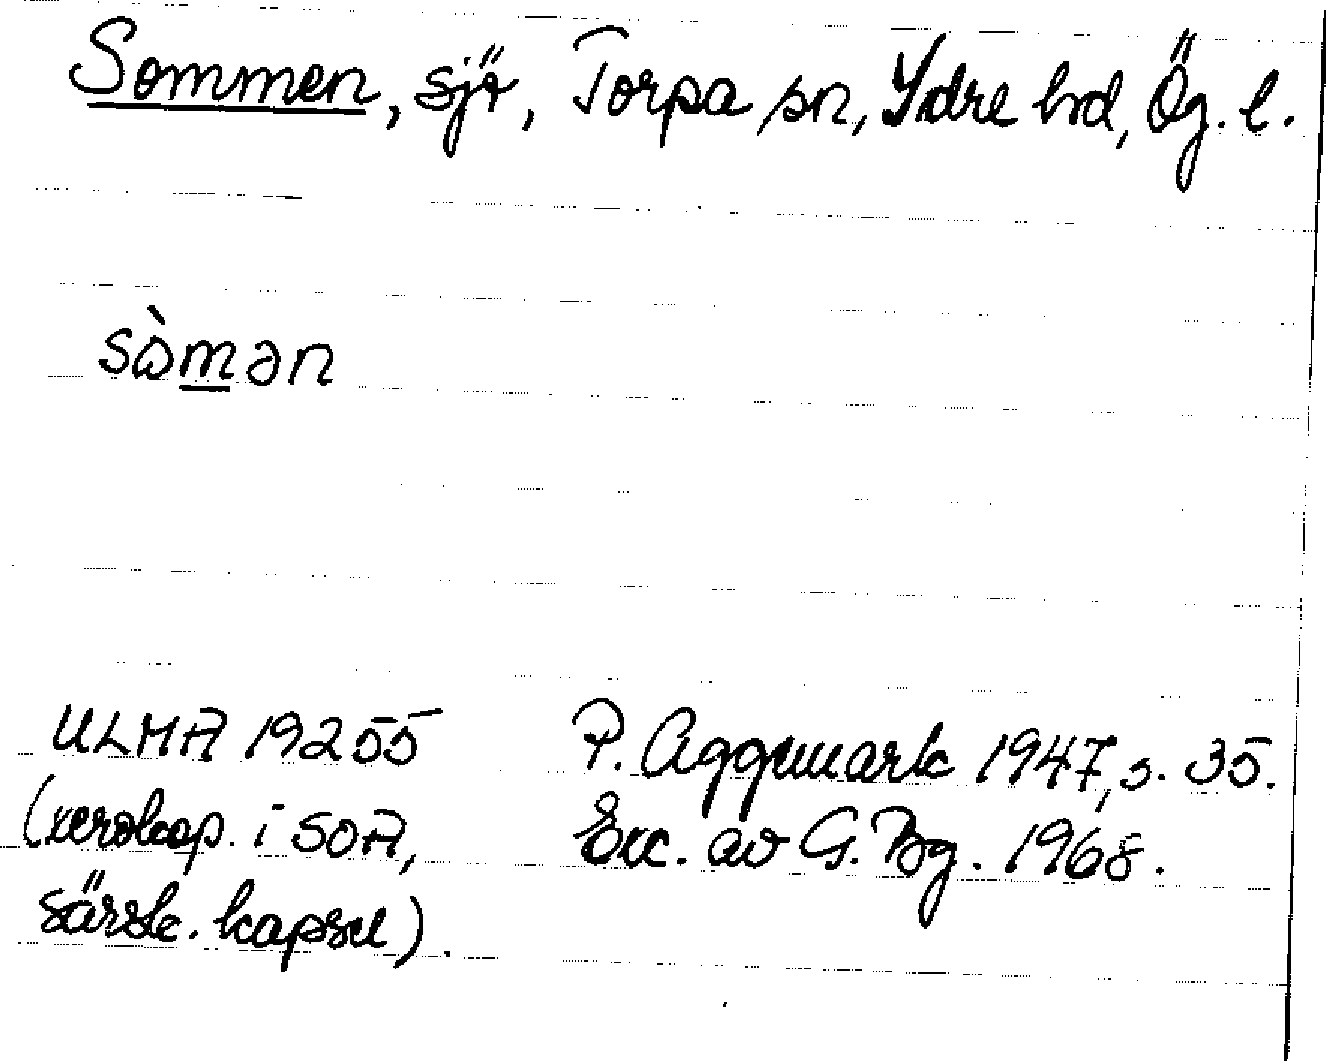 Sommen, sjö, Torpa sn, Ydre hd, Ög. l.
sò̀mən
ULMA 19255
(xerokop. i SOA,
särsk. kapsel).
P. Aggemark 1947, s. 35.
Exc. av G. Bg. 1968.